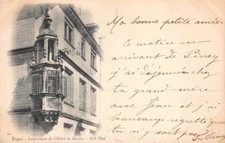 Ma bonne petite amie,
Ce matin en
arrivant de
j'ai déjeuné chez
ta grand mère
avec Jean et j'ai
beaucoup regretté que
tu n'y sois pas
Troyes - de l'Hôtel de - ND Phot